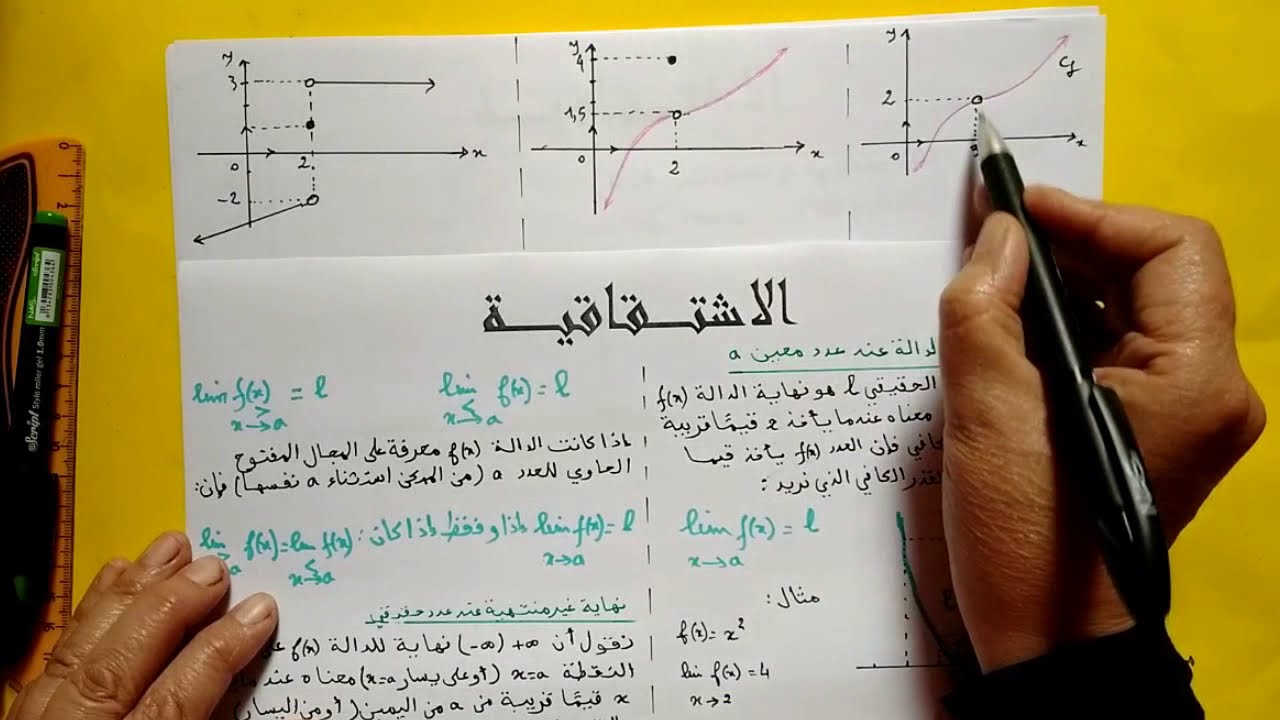 y
3
0
2
-2
x
y
4
1,5
0
2
x
y
2
0
x
Cf
الاشتقاقية
الدالة عند عدد معين a
الحقيقي l هو نهاية الدالة f(x)
معناه عندما يأخذ x قيمًا قريبة
فإن العدد f(x) يأخذ قيما
القدر الكافي الذي نريد :
lim f(x) = l
x→a
مثال :
f(x) = x²
lim f(x) = 4
x→2
lim f(x) = l
x→a
>
lim f(x) = l
x→a
<
إذا كانت الدالة f(x) معرفة على المجال المفتوح
الحاوي للعدد a (من الممكن استثناء a نفسها) فإن:
lim f(x) = l إذا و فقط إذا كان : lim f(x) = lim f(x)
نهاية غير منتهية عند عدد حقيقي
نقول أن ∞+ (∞-) نهاية للدالة f(x)
النقطة x=a (أو على يسار x=a) معناه عندما
x قيمًا قريبة من a من اليمين (أو من اليسار)
Script
Stylo roller gel 1.0mm